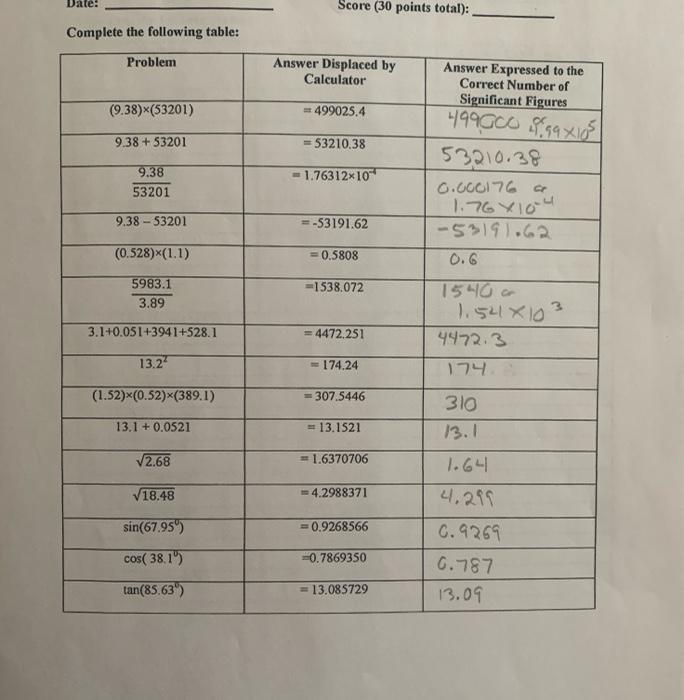 Date:
Score (30 points total):
Complete the following table:
Problem
Answer Displaced by
Calculator
Answer Expressed to the
Correct Number of
Significant Figures
(9.38)×(53201)
= 499025.4
499000 or 4.99×10⁵
9.38 + 53201
= 53210.38
53210.38
9.38
53201
= 1.76312×10⁻⁴
0.000176 or
1.76×10⁻⁴
9.38 – 53201
= -53191.62
-53191.62
(0.528)×(1.1)
= 0.5808
0.6
5983.1
3.89
=1538.072
1540 or
1.54×10³
3.1+0.051+3941+528.1
= 4472.251
4472.3
13.2²
= 174.24
174.
(1.52)×(0.52)×(389.1)
= 307.5446
310
13.1 + 0.0521
= 13.1521
13.1
√2.68
= 1.6370706
1.64
√18.48
= 4.2988371
4.299
sin(67.95⁰)
= 0.9268566
0.9269
cos( 38.1⁰)
=0.7869350
0.787
tan(85.63⁰)
= 13.085729
13.09